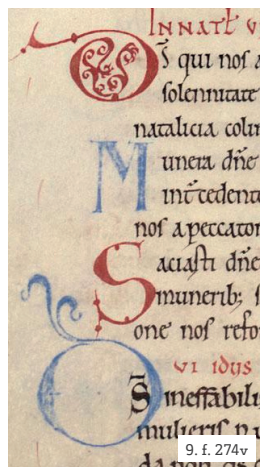 INNATL V
DS̄ qui nos a
ſolennitate
natalicia colim
Munera dn̄e
int̄cedent
nos a peccator
Saciaſti dn̄e
munerib; s
one nos refo
VI idus
DS̄ ineffabili
mulieris n
9. f. 274v